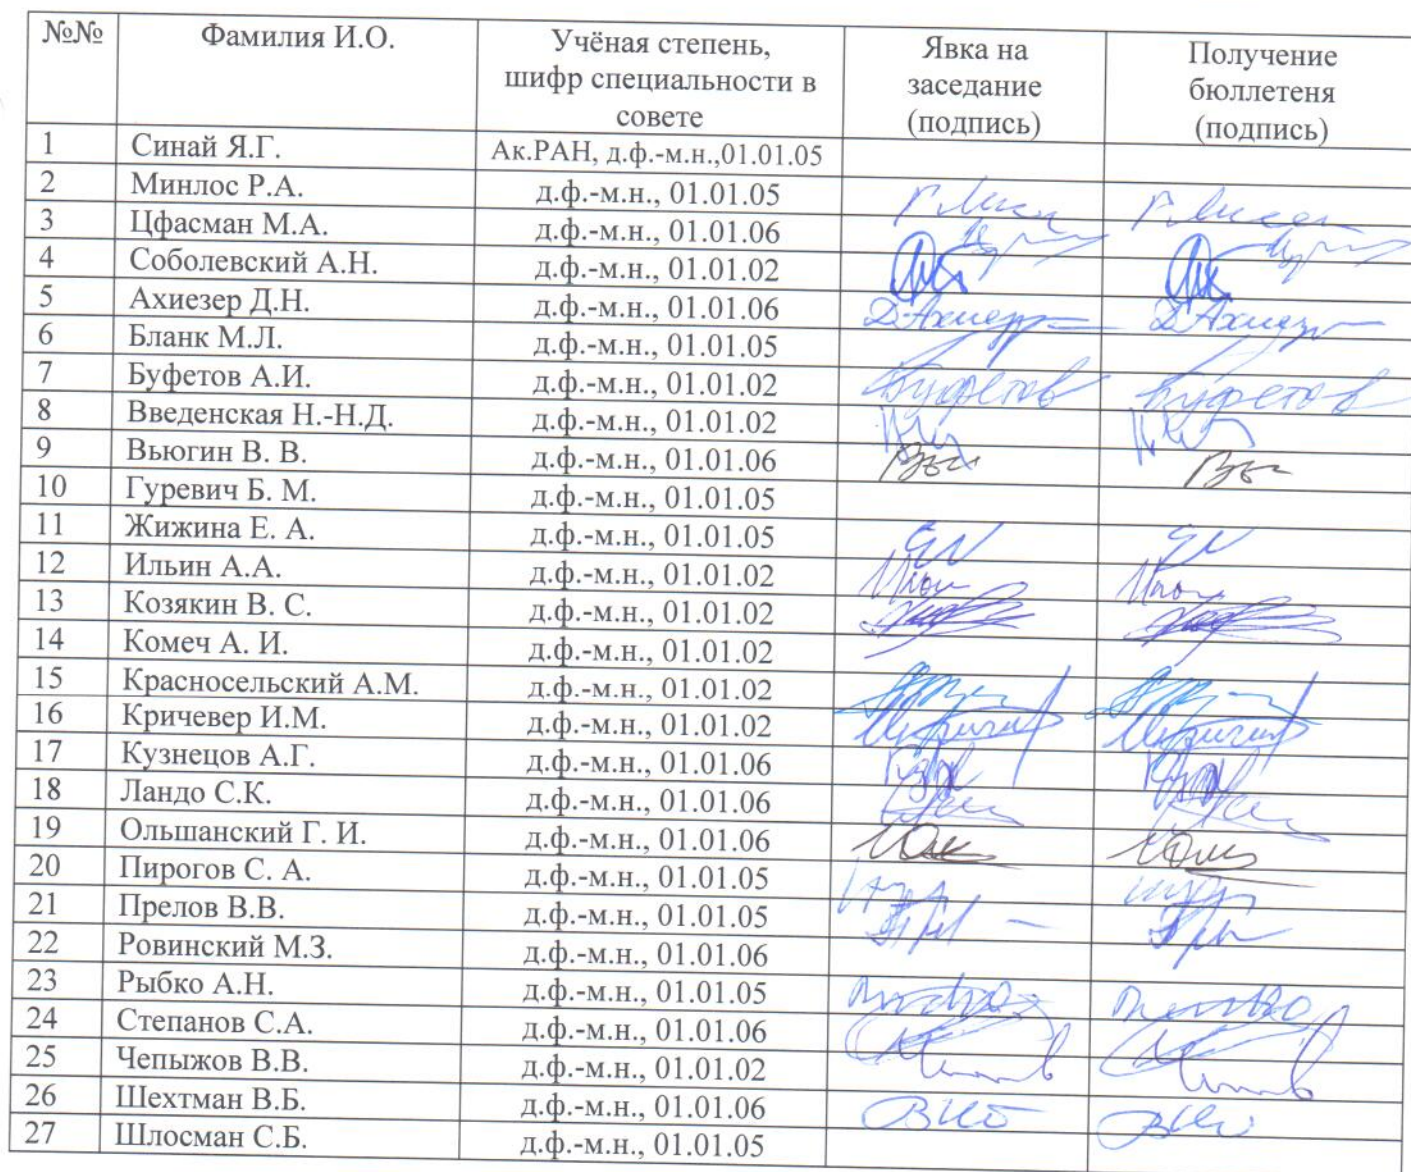 №№ Фамилия И.О. Учёная степень, шифр специальности в совете Явка на заседание (подпись) Получение бюллетеня (подпись)
1 Синай Я.Г. Ак.РАН, д.ф.-м.н.,01.01.05
2 Минлос Р.А. д.ф.-м.н., 01.01.05
3 Цфасман М.А. д.ф.-м.н., 01.01.06
4 Соболевский А.Н. д.ф.-м.н., 01.01.02
5 Ахиезер Д.Н. д.ф.-м.н., 01.01.06 Д Ахиезер Д Ахиезер
6 Бланк М.Л. д.ф.-м.н., 01.01.05
7 Буфетов А.И. д.ф.-м.н., 01.01.02 Буфетов Буфетов
8 Введенская Н.-Н.Д. д.ф.-м.н., 01.01.02
9 Вьюгин В. В. д.ф.-м.н., 01.01.06
10 Гуревич Б. М. д.ф.-м.н., 01.01.05
11 Жижина Е. А. д.ф.-м.н., 01.01.05
12 Ильин А.А. д.ф.-м.н., 01.01.02
13 Козякин В. С. д.ф.-м.н., 01.01.02
14 Комеч А. И. д.ф.-м.н., 01.01.02
15 Красносельский А.М. д.ф.-м.н., 01.01.02
16 Кричевер И.М. д.ф.-м.н., 01.01.02
17 Кузнецов А.Г. д.ф.-м.н., 01.01.06
18 Ландо С.К. д.ф.-м.н., 01.01.06
19 Ольшанский Г. И. д.ф.-м.н., 01.01.06
20 Пирогов С. А. д.ф.-м.н., 01.01.05
21 Прелов В.В. д.ф.-м.н., 01.01.05
22 Ровинский М.З. д.ф.-м.н., 01.01.06
23 Рыбко А.Н. д.ф.-м.н., 01.01.05
24 Степанов С.А. д.ф.-м.н., 01.01.06
25 Чепыжов В.В. д.ф.-м.н., 01.01.02
26 Шехтман В.Б. д.ф.-м.н., 01.01.06
27 Шлосман С.Б. д.ф.-м.н., 01.01.05